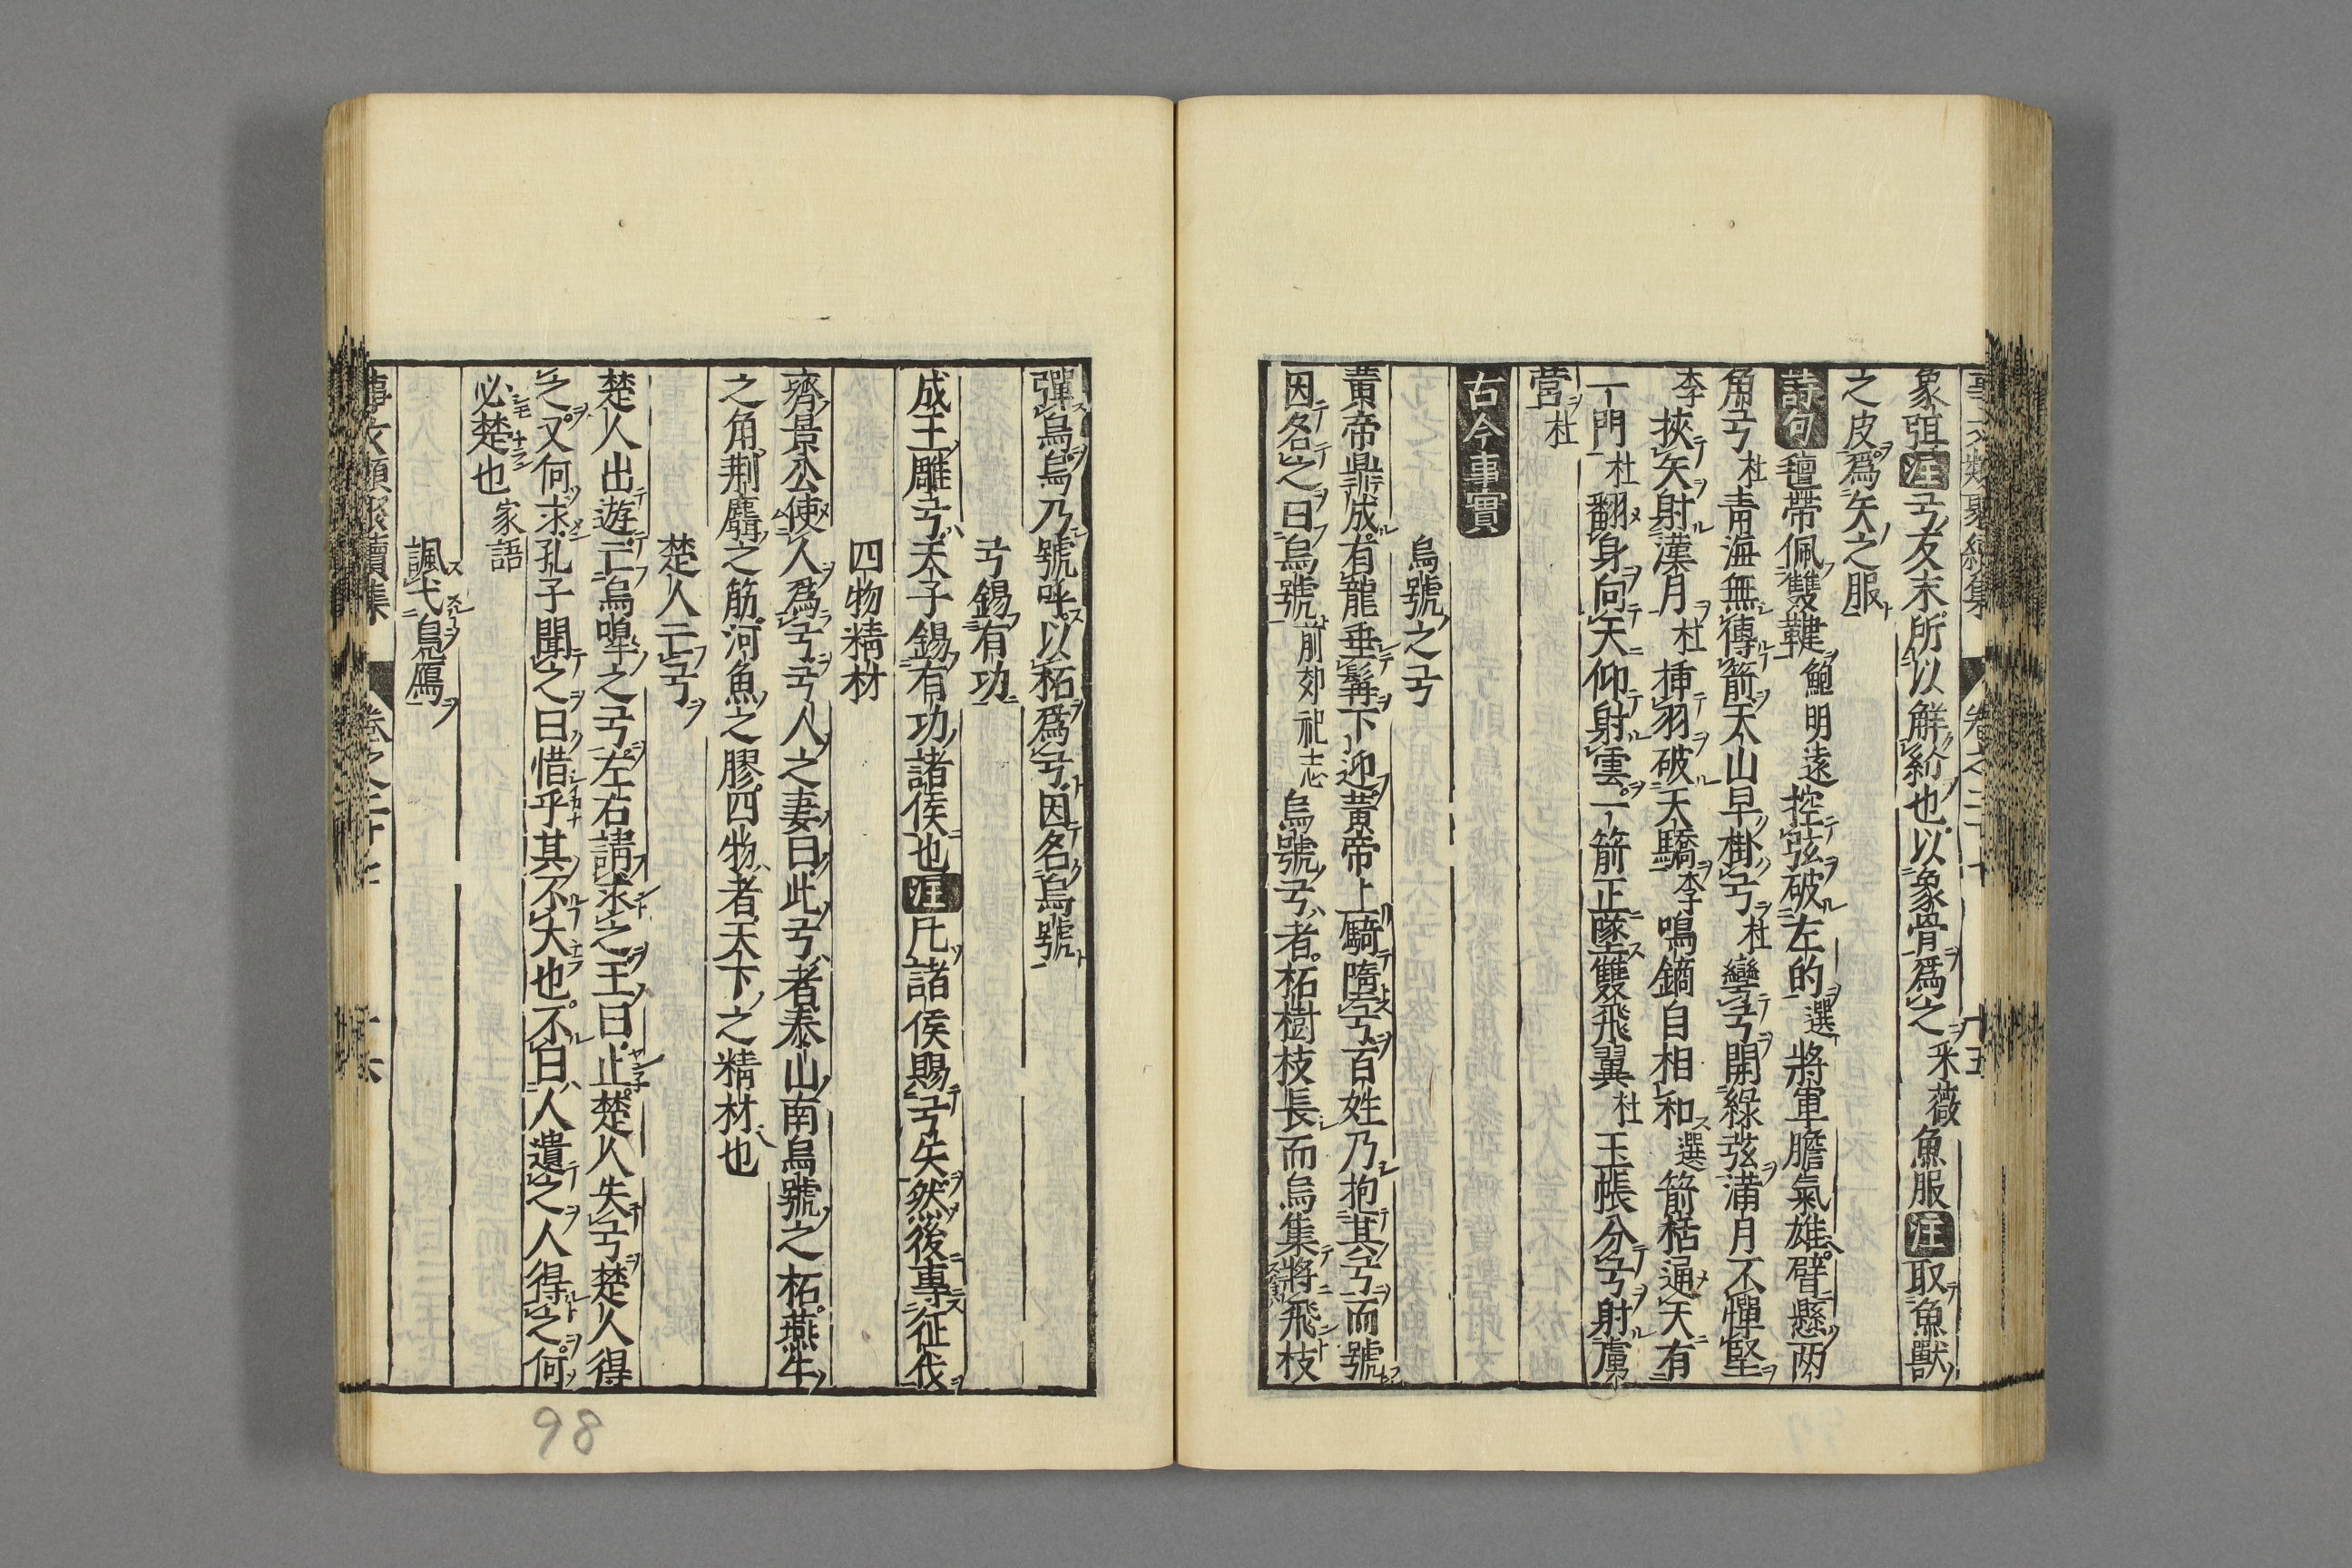 事文類聚續集　卷之二十七　十五
象弭注弓友末所以解紛也以象骨爲之采薇魚服注取魚獸
之皮爲矢之服
詩句氊帶佩雙鞬鮑明遠控弦破左的選將軍膽氣雄臂懸两
角弓杜青海無傳箭天山早掛弓杜彎弓開綠弦滿月不憚堅
李挾矢射漢月杜揷羽破天驕李鳴鏑自相和選箭栝通天有
一門杜翻身向天仰射雲一箭正墜雙飛翼杜玉帳分弓射虜
營杜
古今事實
烏號之弓
黃帝鼎成有龍垂髯下迎黃帝上騎隋弓百姓乃抱其弓而號
因名之曰烏號前郊祀志烏號弓者柘樹枝長而烏集將飛枝
彈烏烏乃號呼以柘爲弓因名烏號
弓錫有功
成王雕弓天子錫有功諸侯也注凡諸侯賜弓矢然後專征伐
四物精材
齊景公使人爲弓弓人之妻曰此弓者泰山南烏號之柘燕牛
之角荆麋之筋河魚之膠四物者天下之精材也
楚人亡弓
楚人出遊亡烏嘷之弓左右請求之王曰止楚人失弓楚人得
之又何求孔子聞之曰惜乎其不大也不曰人遺之人得之何
必楚也家語
諷弋鳬鴈
事文類聚續集　卷之二十七　十六
98